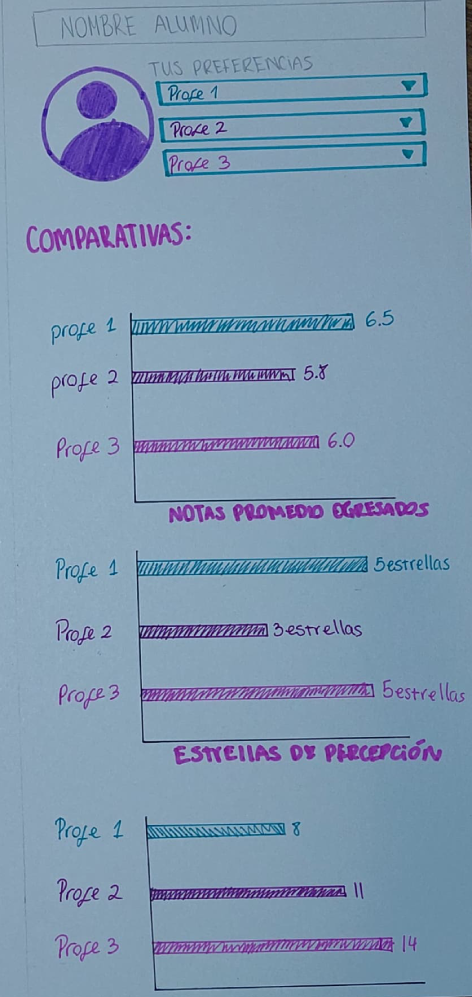 NOMBRE ALUMNO
TUS PREFERENCIAS
Profe 1
Profe 2
Profe 3
COMPARATIVAS:
profe 1 6.5
profe 2 5.8
Profe 3 6.0
NOTAS PROMEDIO EGRESADOS
Profe 1 5 estrellas
Profe 2 3 estrellas
Profe 3 5 estrellas
ESTRELLAS DE PERCEPCIÓN
Profe 1 8
Profe 2 11
Profe 3 14